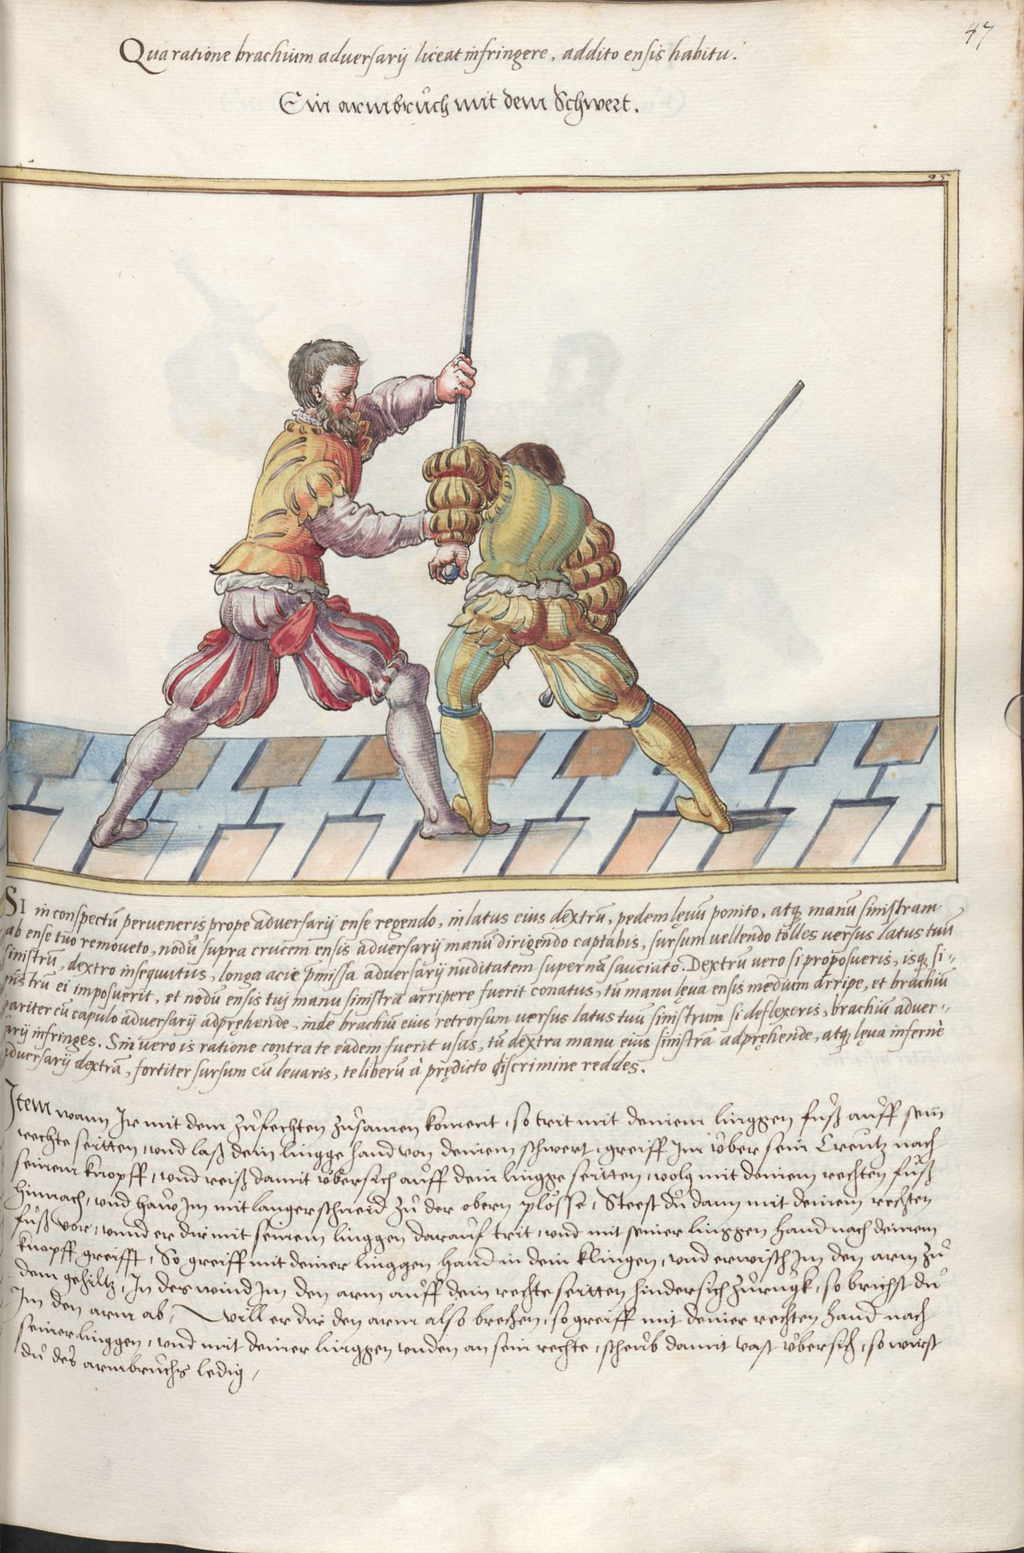 47
Qua ratione brachium adversarij liceat infringere, addito ensis habitu.
Ein armbrůch mit dem Schwert.
95
SI in conspectũ perveneris prope adversarij ense regendo, in latus eius dextrũ, pedem lęvũ ponito, atq; manũ sinistram
ab ense tuo removeto, nodũ supra crucem ensis adversarij manũ dirigendo captabis, sursum vellendo tolles versus latus tuũ
sinistrũ, dextro insequutus, longa acie p̃missa adversarij nuditatem supernã sauciato. Dextrũ vero si proposueris, isq; si-
nistrũ ei imposuerit, et nodũ ensis tuj manu sinistra arripere fuerit conatus, tũ manu lęva ensis medium arripe, et brachiũ
pariter cũ capulo adversarij adprehende, inde brachiũ eius retrorsum versus latus tuũ sinistrum si deflexeris, brachiũ adver-
sarij infringes. Sin vero is ratione contra te eadem fuerit usus, tũ dextra manu eius sinistrã adprehende, atq; lęva inferne
adversarij dextrã, fortiter sursum cũ levaris, te liberũ à prędicto discrimine reddes.
Item wann Ir mit dem zůfechten zůsamen koment, so trit mit deinem linggen fůß auff sein
rechte seitten, vnd laß dein lingge hand von deinem schwert, greiff Im über sein Creutz nach
seinem knopff, vnd reiß damit übersich auff dein lingge seitten, volg mit deinem rechten fůß
hinnach, vnd haw Im mit langer schneid zů der obern plösse, Steest dů dann mit deinem rechten
fůß vor, vnnd er dir mit seinem linggen darauf trit, vnd mit seiner linggen hand nach deinem
knopff greifft, So greiff mit deiner linggen hand in dein klingen, vnd erwisch Im den arm zů
dem gehiltz, In des wind Im den arm auff dein rechte seitten hindersich zůrugk, so brichst dů
Im den arm ab, Will er dir den arm also brechen, so greiff mit deiner rechten hand nach
seiner linggen, vnd mit deiner linggen vnden an sein rechte, scheüb damit vast übersich, so wirst
dů des armbrůchs ledig,